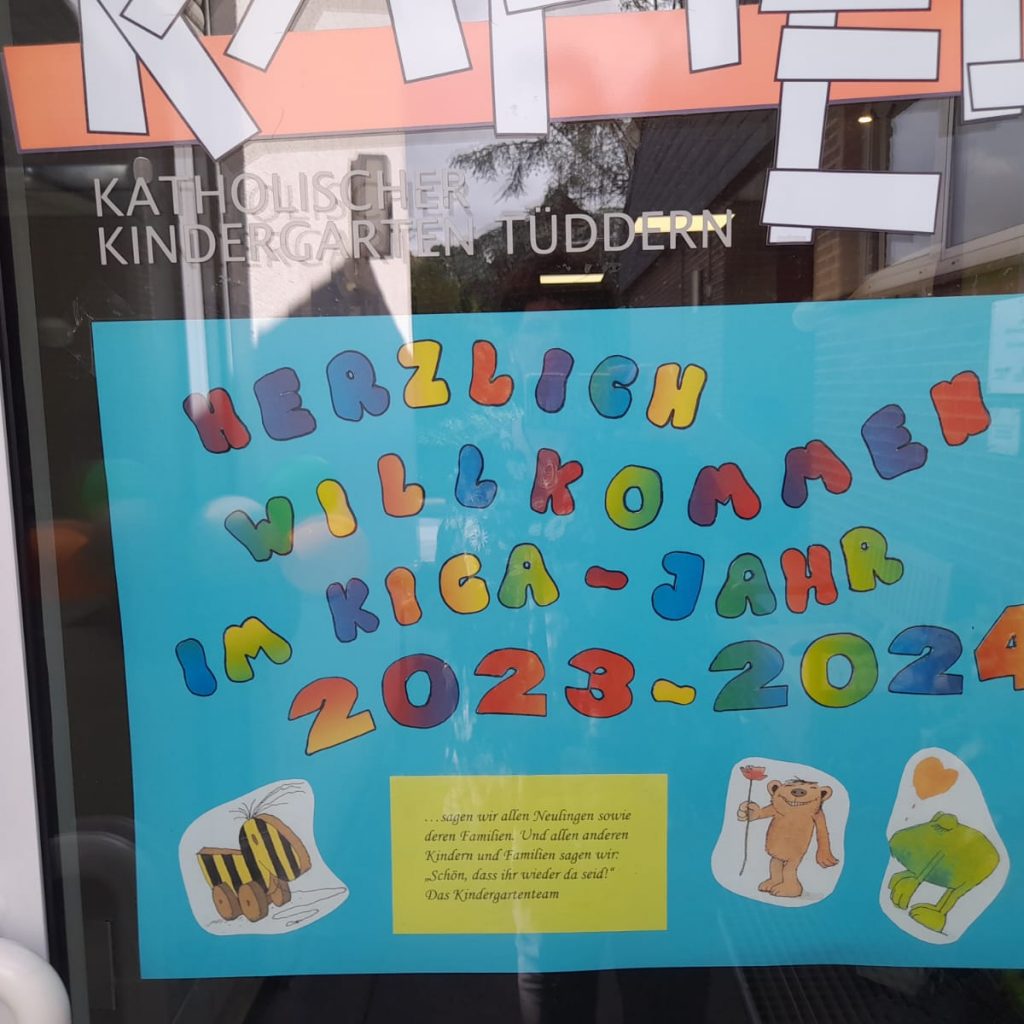 KATHOLISCHER
KINDERGARTEN TÜDDERN
HERZLICH
WILLKOMMEN
IM KIGA - JAHR
2023-2024
...sagen wir allen Neulingen sowie
deren Familien. Und allen anderen
Kindern und Familien sagen wir:
„Schön, dass ihr wieder da seid!“
Das Kindergartenteam